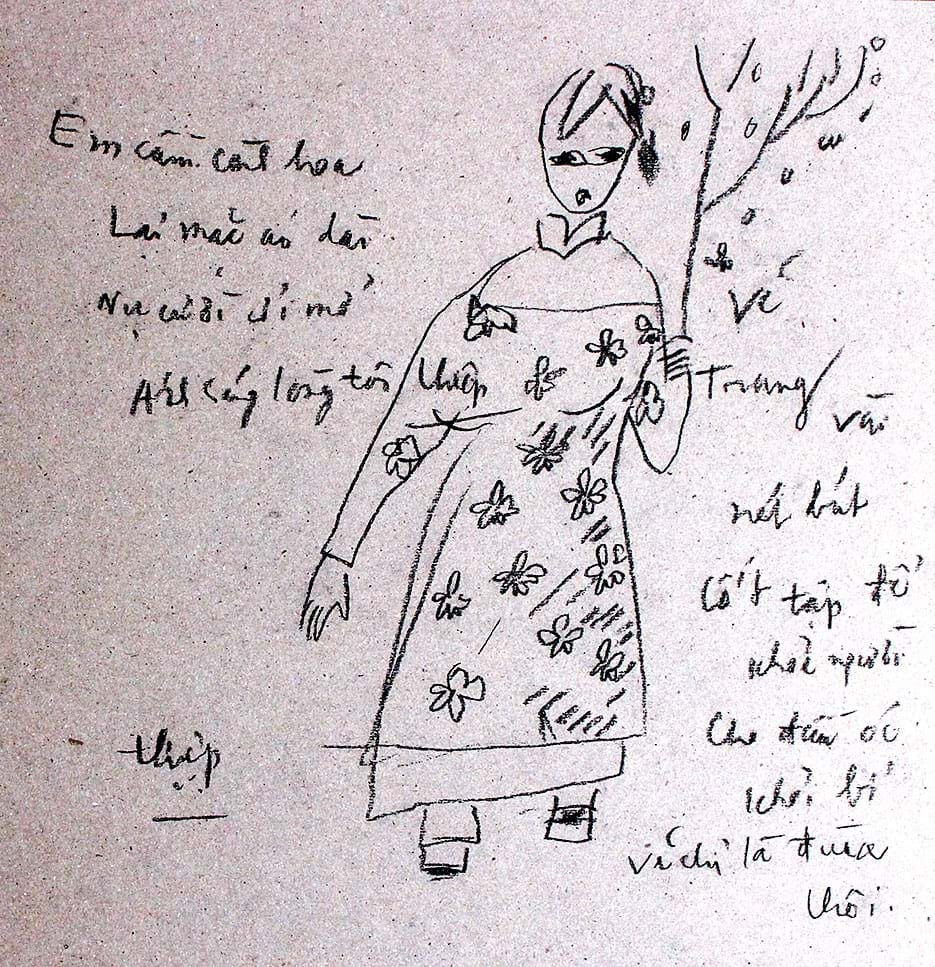 Em cầm cành hoa
Lại mặc áo dài
Nụ cười mở
lòng tôi thiệp
Vẽ
vài
nét bút
Cốt tập để
khoẻ người
Cho đầu óc
khỏi bí
Vẽ chỉ là đùa
thôi.
thiệp